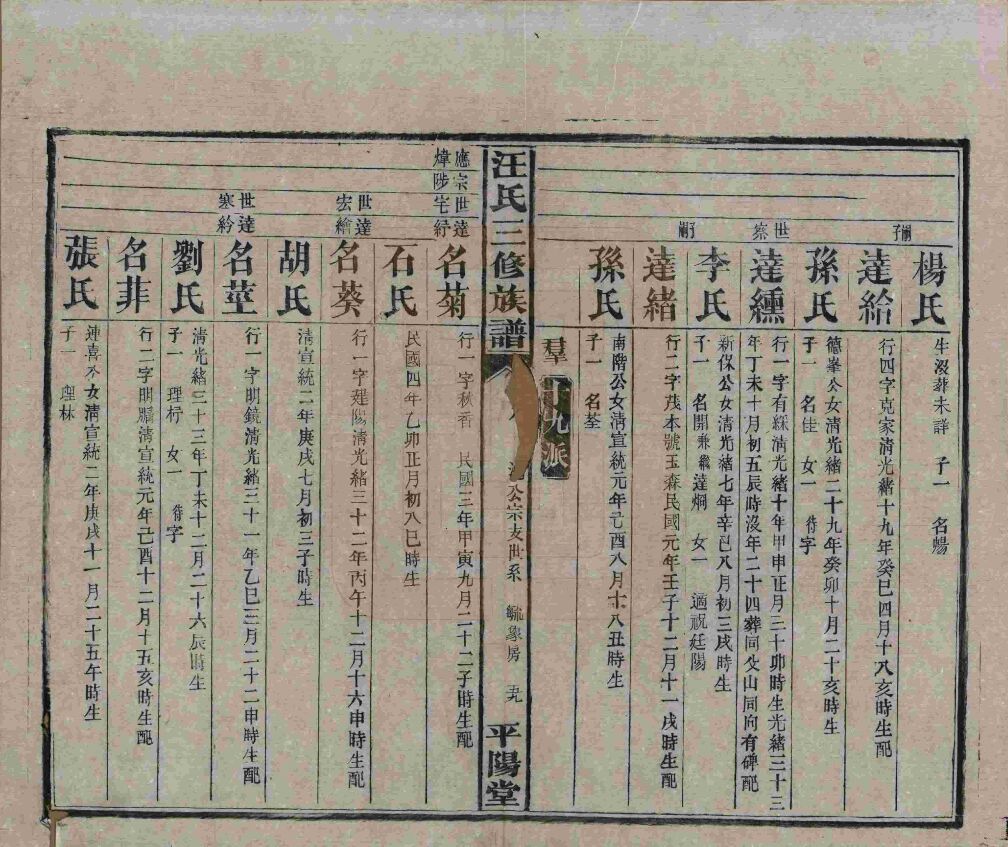 楊氏
生沒葬未詳 子一 名暘
嗣子
達給
行四字克家清光緒十九年癸巳四月十八亥時生配
孫氏
德峯公女清光緒二十九年癸卯十月二十亥時生
子一 名佳 女一 待字
世察
達纁
行一字有綵清光緒十年甲申正月三十卯時生光緒三十三
年丁未十月初五辰時沒年二十四葬同父山同向有碑配
李氏
新保公女清光緒七年辛巳八月初三戌時生
子一 名開兼繼達炯 女一 適祝廷陽
嗣子
達緒
行二字茂本號玉森民國元年壬子十二月十一戌時生配
孫氏
南階公女清宣統元年己酉八月十八丑時生
子一 名荃
羣
十九派
汪氏三修族譜
公宗支世系 房 五九
平陽堂
應煒
宗陟
世宅
達紆
名菊
行一字秋香 民國三年甲寅九月二十二子時生配
石氏
民國四年乙卯正月初八巳時生
世宏
達繪
名葵
行一字建陽清光緒三十二年丙午十二月十六申時生配
胡氏
清宣統二年庚戌七月初三子時生
世寒
達紟
名莖
行一字明鏡清光緒三十一年乙巳三月二十二申時生配
劉氏
清光緒三十三年丁未十二月二十六辰時生
子一 理柠 女一 待字
名菲
行二字明牖清宣統元年己酉十二月十五亥時生配
張氏
連喜公女清宣統二年庚戌十一月二十五午時生
子一 理林